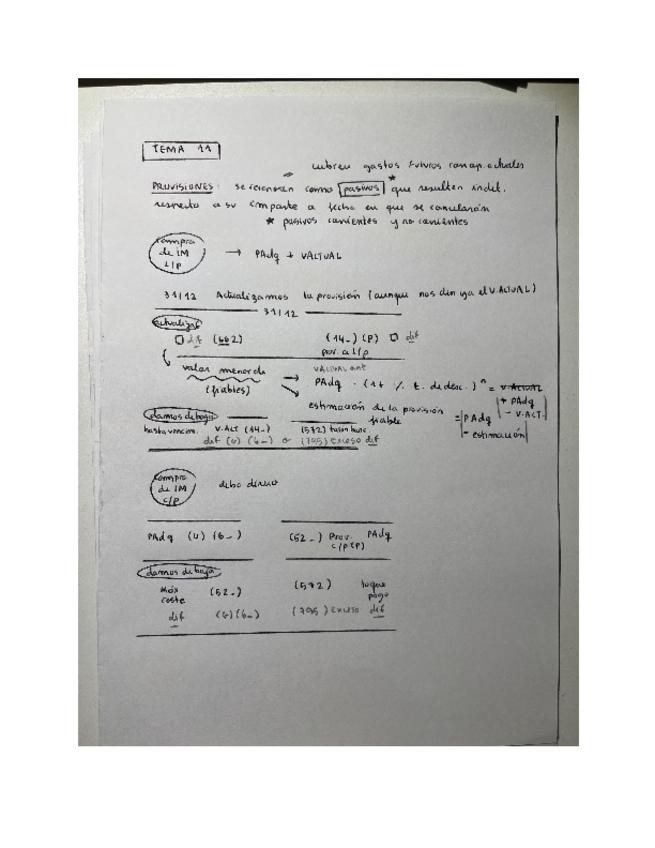 TEMA 11
cubren gastos futuros con ap. actuales
PROVISIONES: se reconocen como pasivos * que resulten indet.
respecto a su importe a fecha en que se cancelarán
* pasivos corrientes y no corrientes
compra de IM L/P → PAdq + VACTUAL
31/12 Actualizamos la provisión (aunque nos den ya el V.ACTUAL)
31/12
actualizac
dif (662) (14_) (P) dif
prov. a L/p
valor menor de (fiables)
VACTUAL ant
→ PAdq · (1+ % t. de desc.)ⁿ = V.ACTUAL
+ PAdq
- V.ACT.
estimación de la provisión fiable = PAdq
- estimación
damos de baja
hasta vencim. V.ACT (14_) (572)
dif (G) (6_) o (795) exceso dif
compra de IM c/p
debo dinero
PAdq (G) (6_) (52_) Prov. c/p (P) PAdq
damos de baja
coste (52_) (572) lo que pago
dif (G) (6_) (795) exceso dif